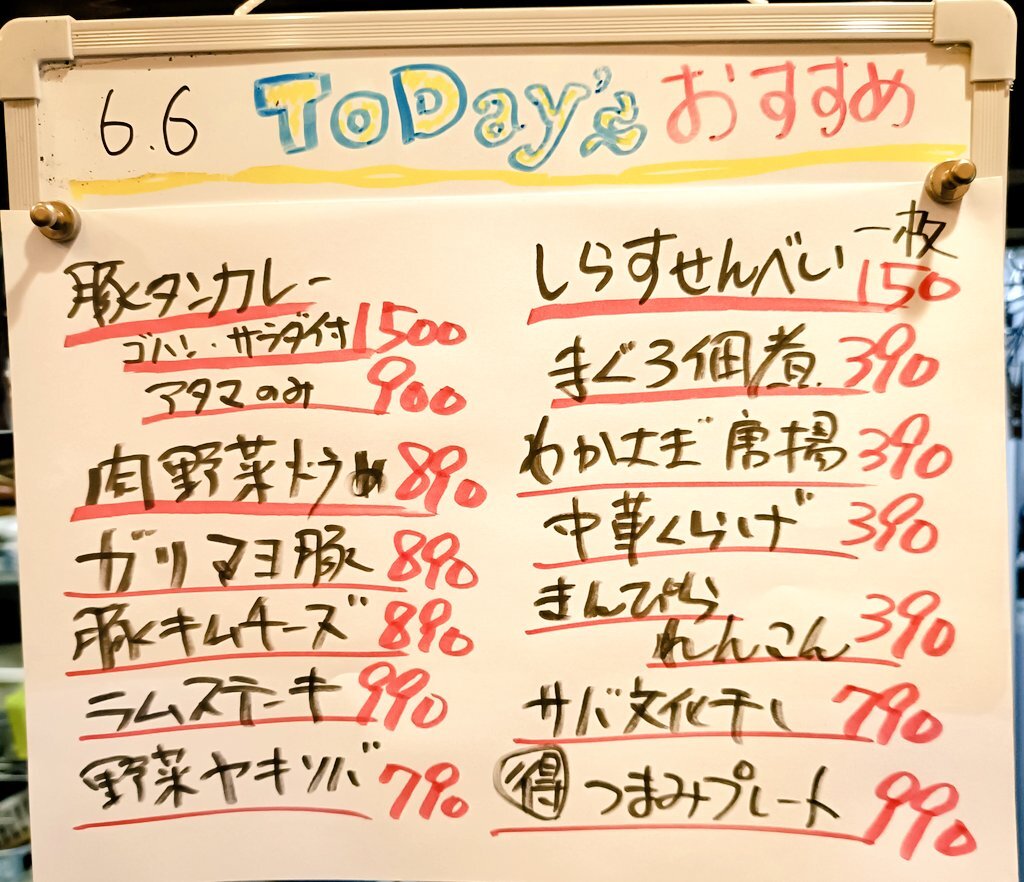 6.6 ToDay's おすすめ
豚タンカレー
ゴハン・サラダ付 1500
アタマのみ 900
肉野菜炒め 890
ガリマヨ豚 890
豚キムチーズ 890
ラムステーキ 990
野菜ヤキソバ 790
しらすせんべい 一枚 150
まぐろ佃煮 390
わかさぎ唐揚 390
中華くらげ 390
きんぴら
れんこん 390
サバ文化干し 790
得 つまみプレート 990